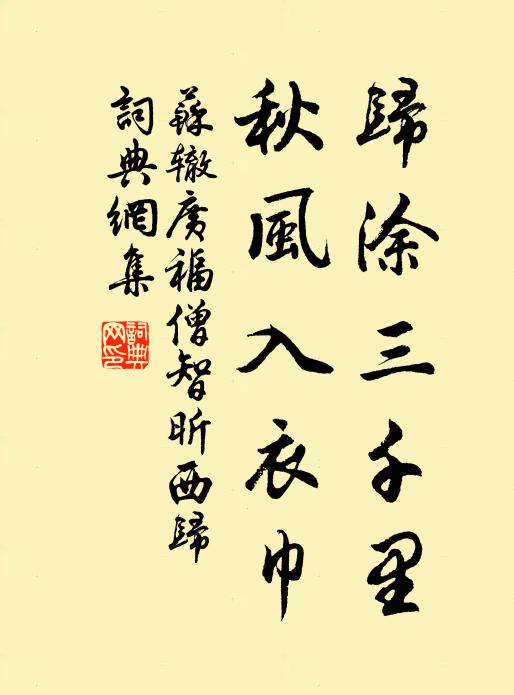 歸涂三千里
秋風入衣巾
蘇辙廣福僧智昕西歸
詞典網集
詞典网印